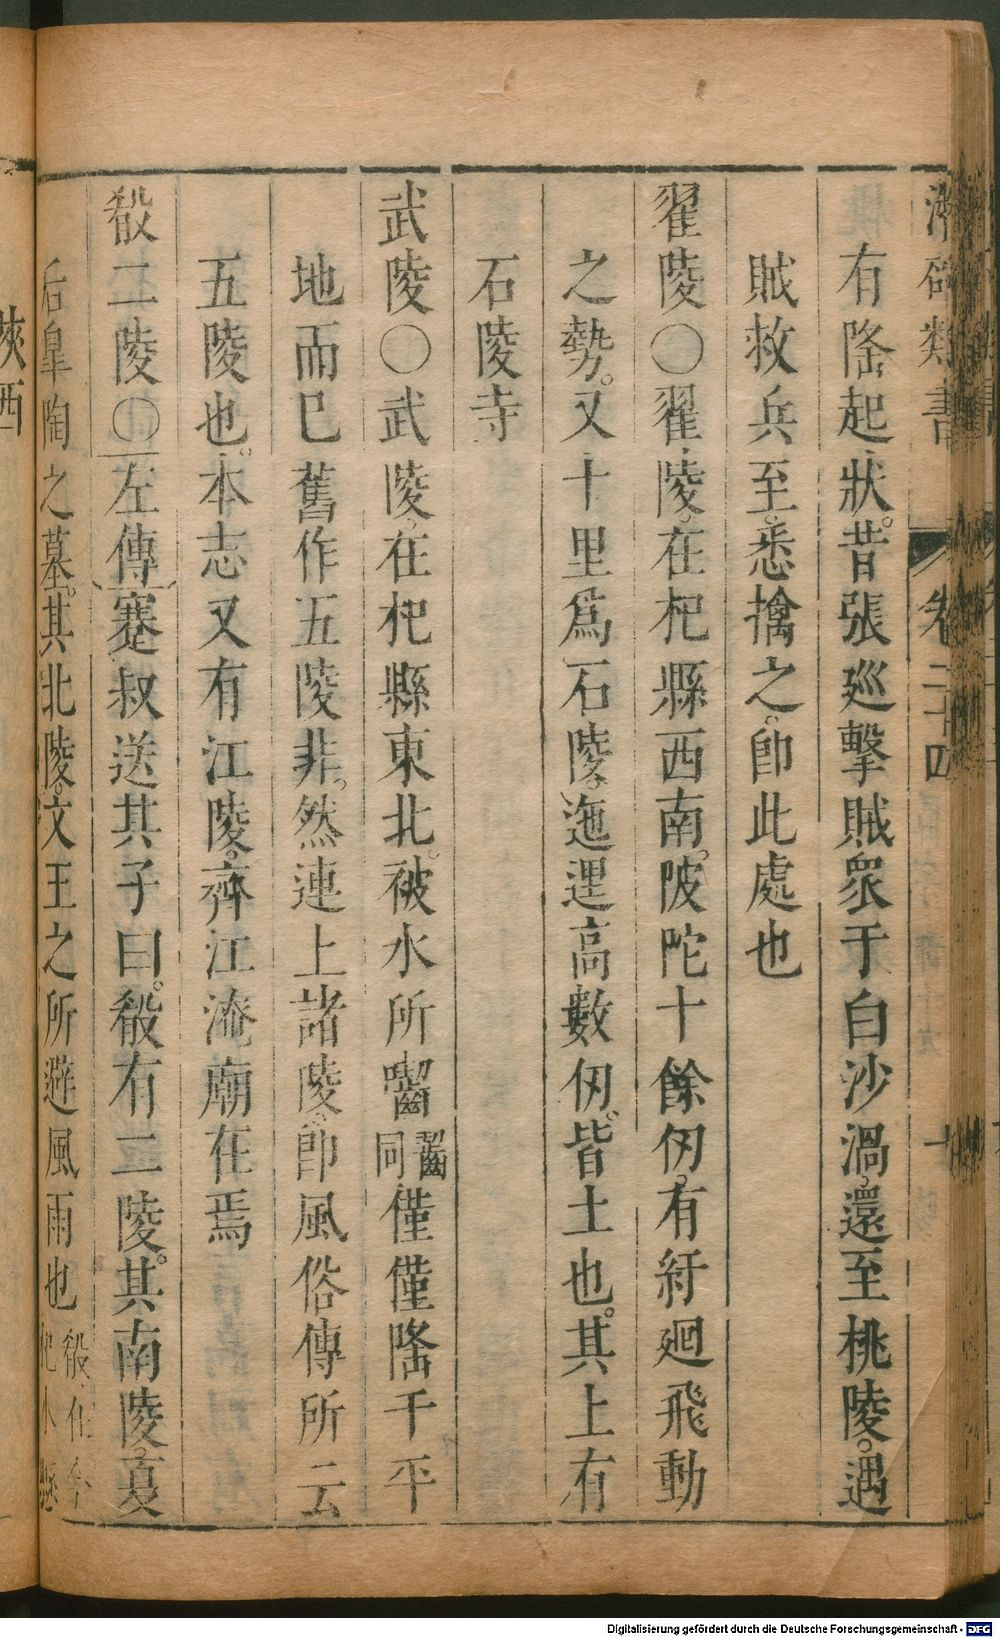 潛確類書 卷二十四
有隆起狀。昔張廵擊賊衆于白沙渦還至桃陵。遇
賊救兵至。悉擒之。卽此處也
翟陵○翟陵。在杞縣西南。陂陀十餘仞。有紆迴飛動
之勢。又十里爲石陵。迤逕高數仞。皆土也。其上有
石陵寺
武陵○武陵。在杞縣東北。被水所囓齧同僅僅隆干平
地而已舊作五陵非。然連上諸陵。卽風俗傳所云
五陵也。本志又有江陵。齊江淹廟在焉
殽二陵○左傳蹇叔送其子曰。殽有二陵。其南陵。夏
后皐陶之墓。其北陵。文王之所避風雨也殽在今
陝西
Digitalisierung gefördert durch die Deutsche Forschungsgemeinschaft - DFG